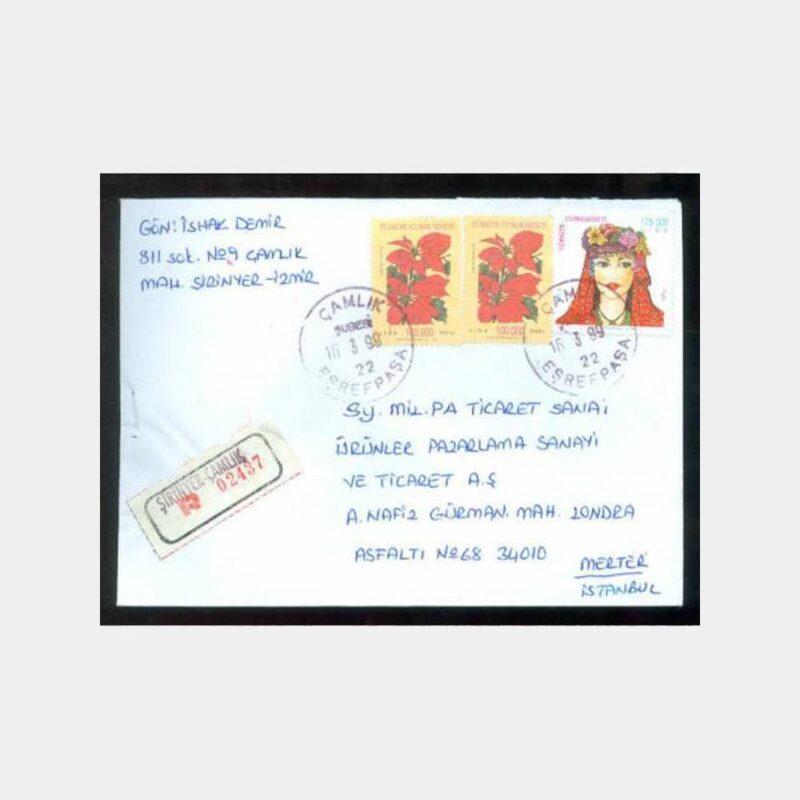 GÖN: İSHAK DEMİR
811 SOK. No9 ÇAMLIK
MAH. ŞİRİNYER-İZMİR
LİRA 100.000
LİRA 100.000
TÜRKİYE CUMHURİYETİ
175.000
LİRA
ÇAMLIK
ŞUBESİ
16 3 99
22
EŞREFPAŞA
ÇAM
16 3 99
22
EŞREFPAŞA
SY. MİL.PA TİCARET SANAİ
ÜRÜNLER PAZARLAMA SANAYİ
VE TİCARET A.Ş
A. NAFİZ GÜRMAN. MAH. LONDRA
ASFALTI No68 34010
MERTER
İSTANBUL
ŞİRİNYER-ÇAMLIK
R 02437